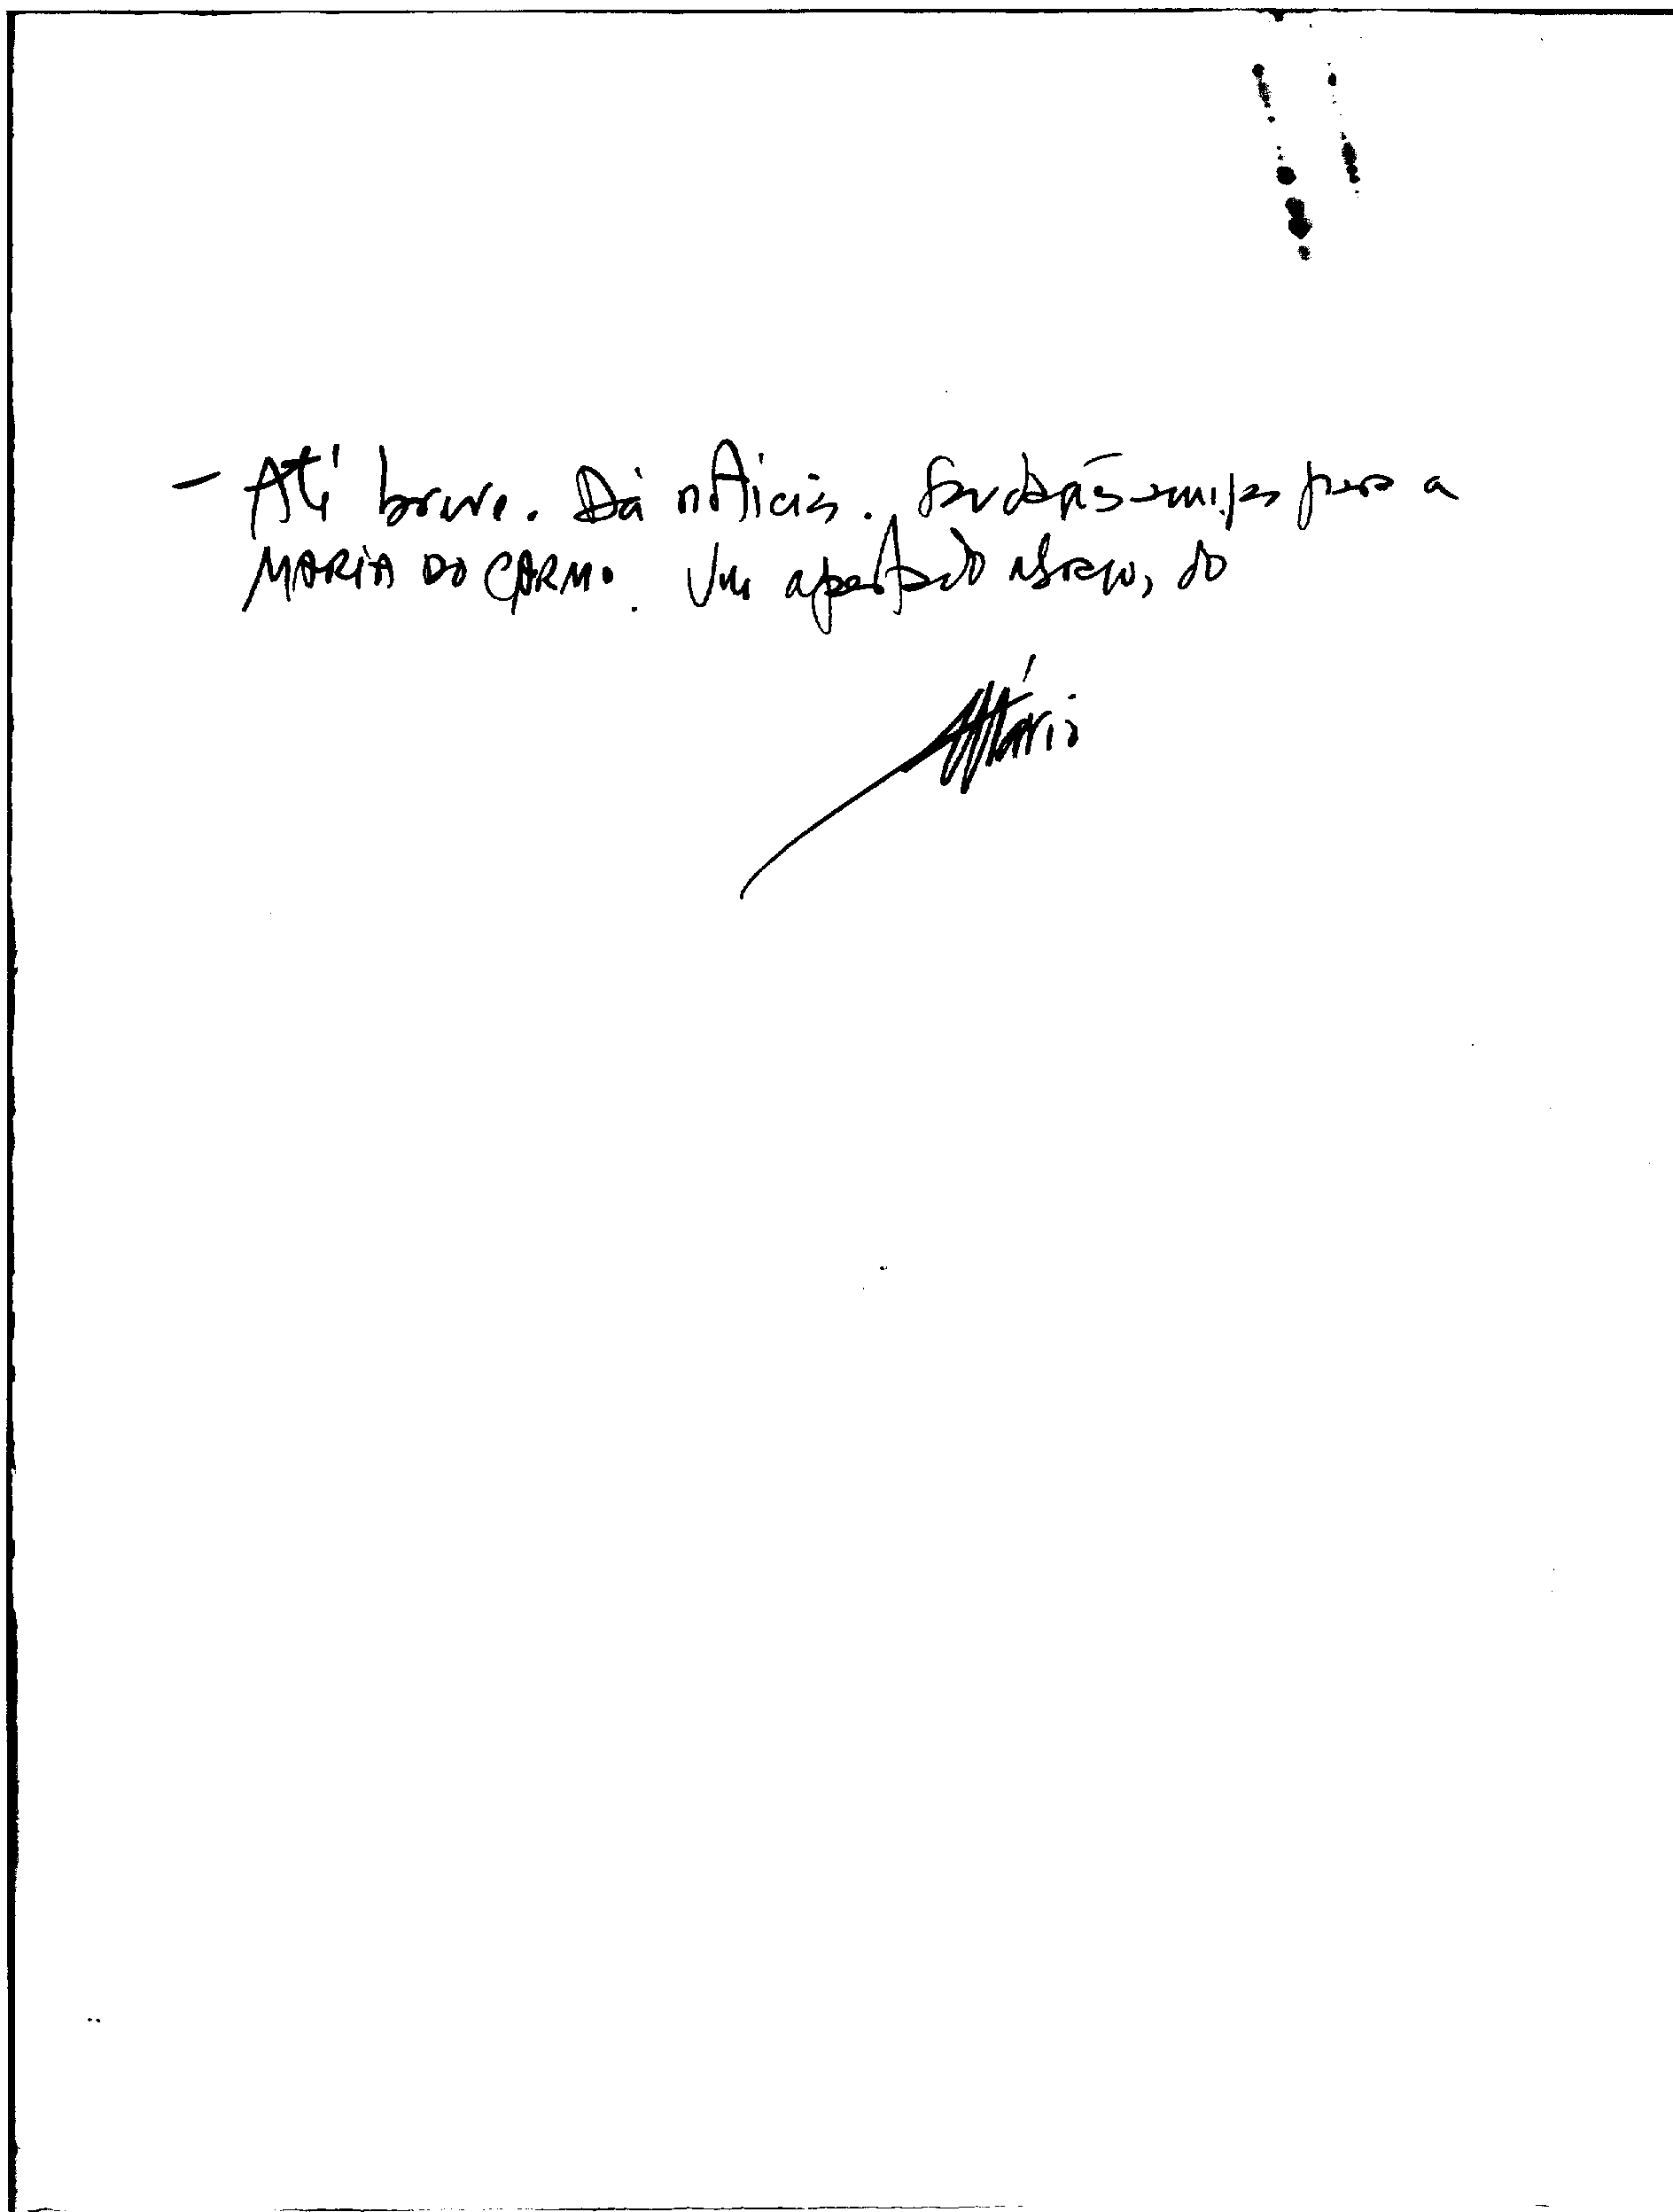 – Até breve. Dá notícias. Saudações amigas para a
MARIA DO CARMO. Um apertado abraço, do
Mário